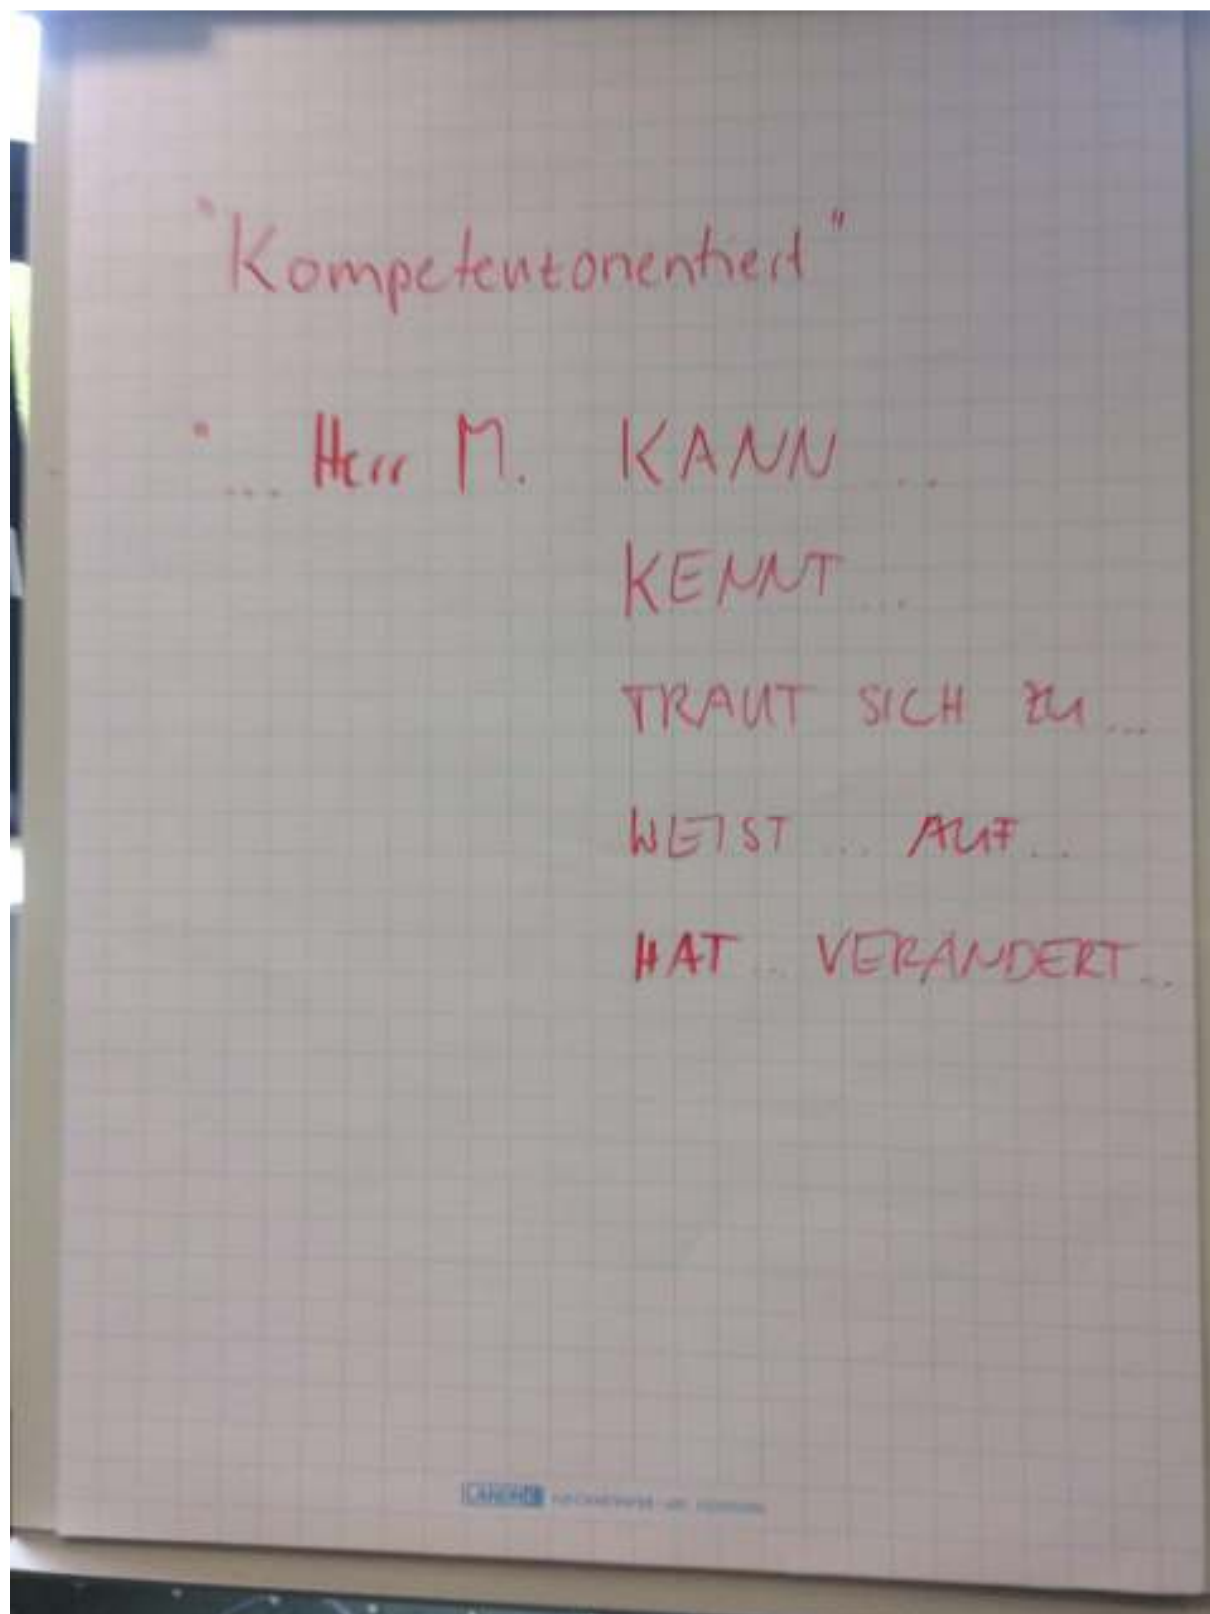 "Kompetenzorientiert"
"... Herr M. KANN ...
KENNT ...
TRAUT SICH ZU ...
WEIST ... AUF ...
HAT ... VERÄNDERT ...
LANDRÉ